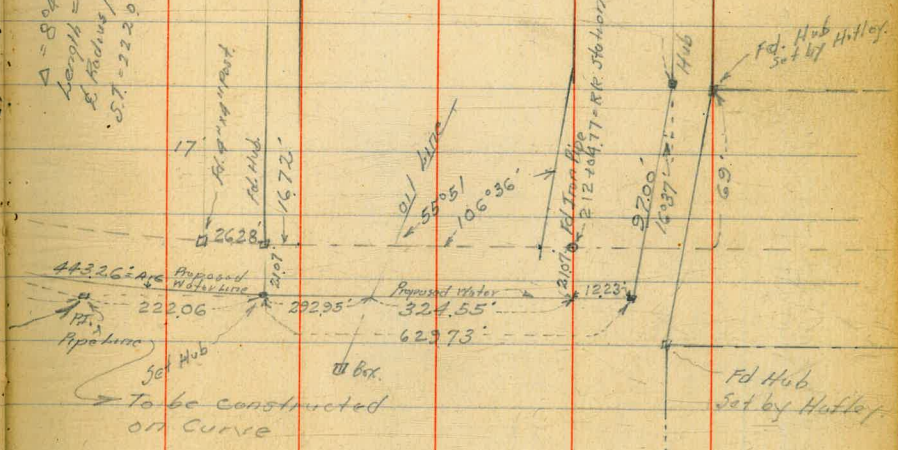 Δ = 80
Length =
£ Radius
S.T = 222.0
17'
Fd. 4"x4" Post.
Fd Hub
16.72'
Oil Line
55°51'
106°36'
Fd Iron Pipe
212+04.77 = R.R. Station
Hub
97.00'
16°37'
69'
Fd. Hub
Set by Hufley.
26.28'
21.07
21.07
443.26' = Arc
Proposed
Water Line
222.06
292.95'
Proposed Water
324.55'
12.23'
629.73'
P.I.
Pipe Line
Set Hub
Box.
To be constructed
on Curve
Fd Hub
Set by Hufley.